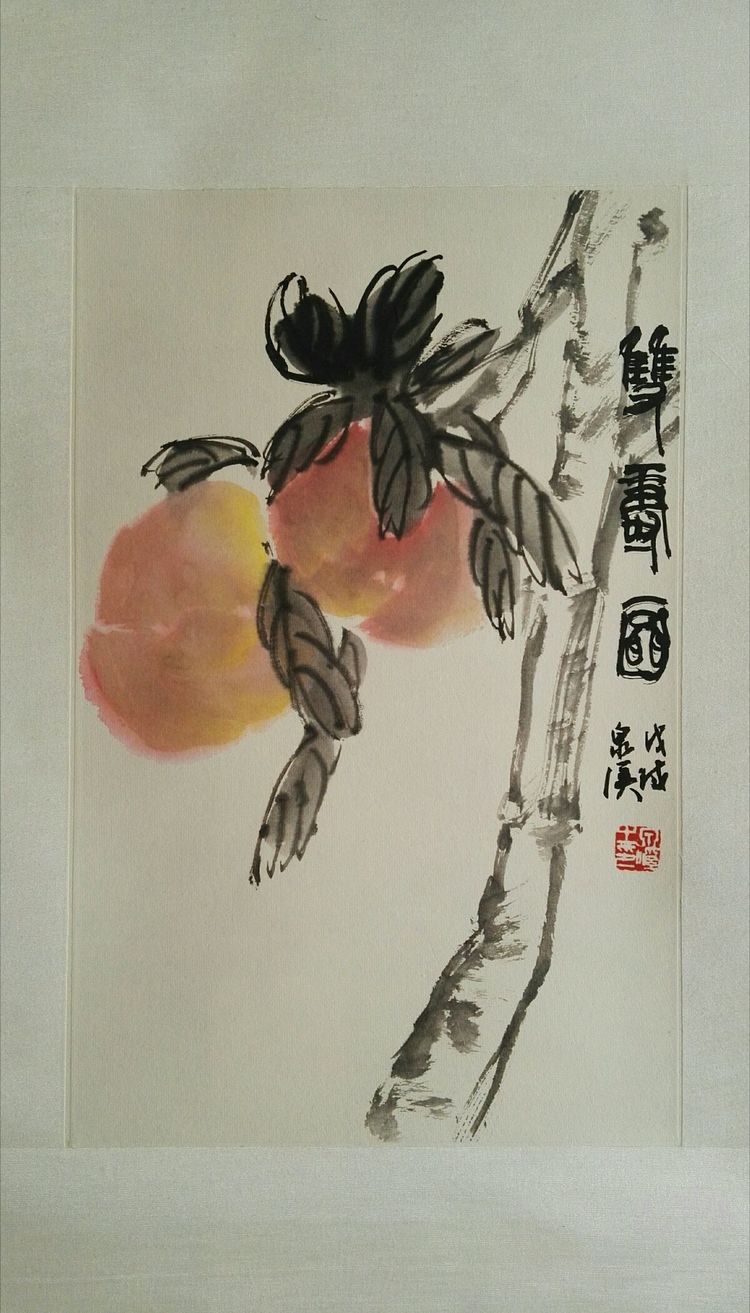 雙壽圖
戊戌
泉溪